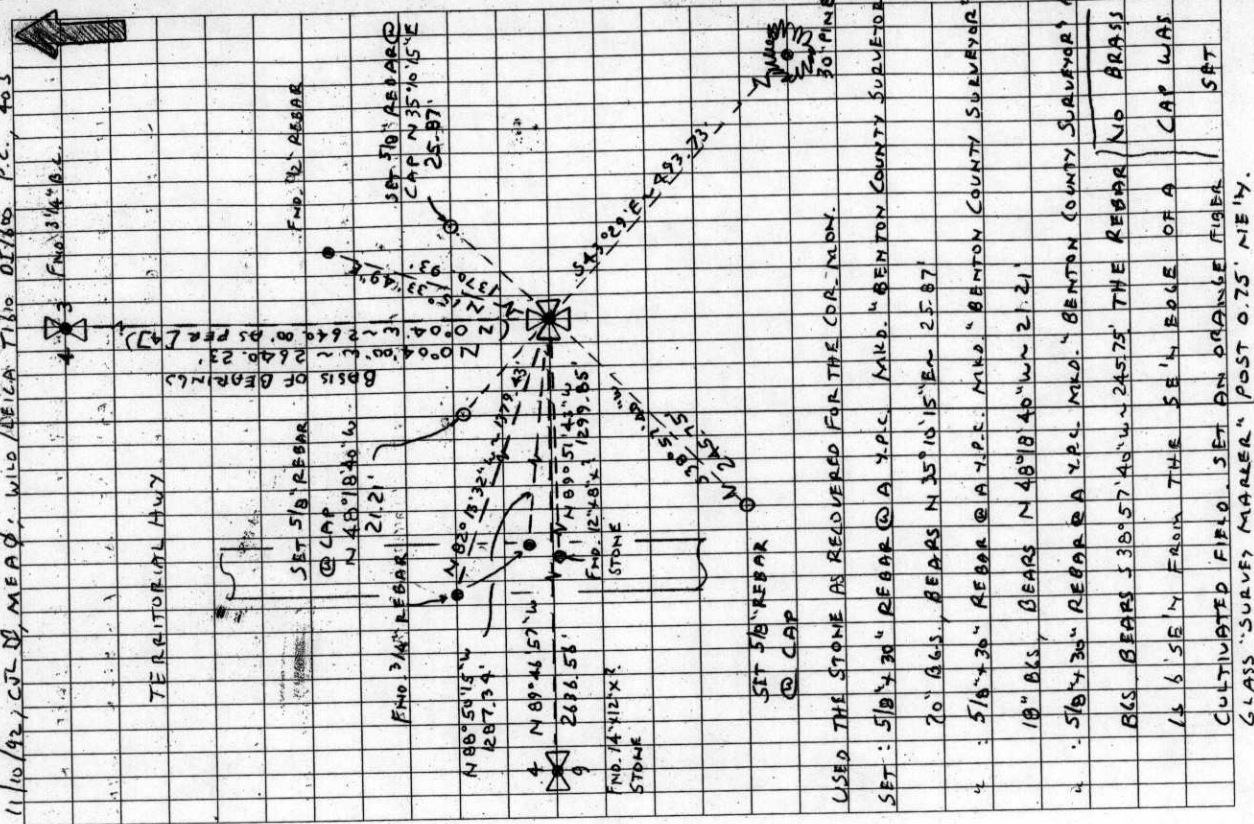 11/10/92, CJL, MEAD, WILD/LEICA T1610 DI1600 P.C., 40S
4 3 FND. 3 1/4" B.C.
TERRITORIAL HWY
BASIS OF BEARINGS
N 0°04'00" W ~ 2640.23'
(N 0°04' E ~ 2640.00' AS PER [4])
FND. 1/2" REBAR
N 15°33'49" E
1370.93'
SET 5/8" REBAR @
CAP N 35°10'15" E
25.87'
SET 5/8" REBAR
@ CAP
N 48°18'40" W
21.21'
FND. 3/4" REBAR
N 82°13'32" W ~ 1379.43'
N 88°50'15" W
1287.34'
4 N 89°46'57" W
9 2636.56'
N 89°51'43" W
1299.85'
FND. 12"X8"X?
STONE
FND. 14"X12"X?
STONE
S 38°57'40" W
245.75'
S 43°29' E ~ 493.73'
30" PINE
SET 5/8" REBAR
@ CAP
USED THE STONE AS RECOVERED FOR THE COR. MON.
SET: 5/8" X 30" REBAR @ A Y.P.C. MKD. "BENTON COUNTY SURVEYOR"
20" B.G.S., BEARS N 35°10'15" E ~ 25.87'
" : 5/8" X 30" REBAR @ A Y.P.C. MKD. "BENTON COUNTY SURVEYOR"
18" BGS, BEARS N 48°18'40" W ~ 21.21'
" : 5/8" X 30" REBAR @ A Y.P.C. MKD. "BENTON COUNTY SURVEYOR"
BGS. BEARS S 38°57'40" W ~ 245.75' THE REBAR
IS 6' SE'LY FROM THE SE'LY EDGE OF A
CULTIVATED FIELD. SET AN ORANGE FIBER
GLASS "SURVEY MARKER" POST 0.75' NE'LY.
NO BRASS
CAP WAS
SET